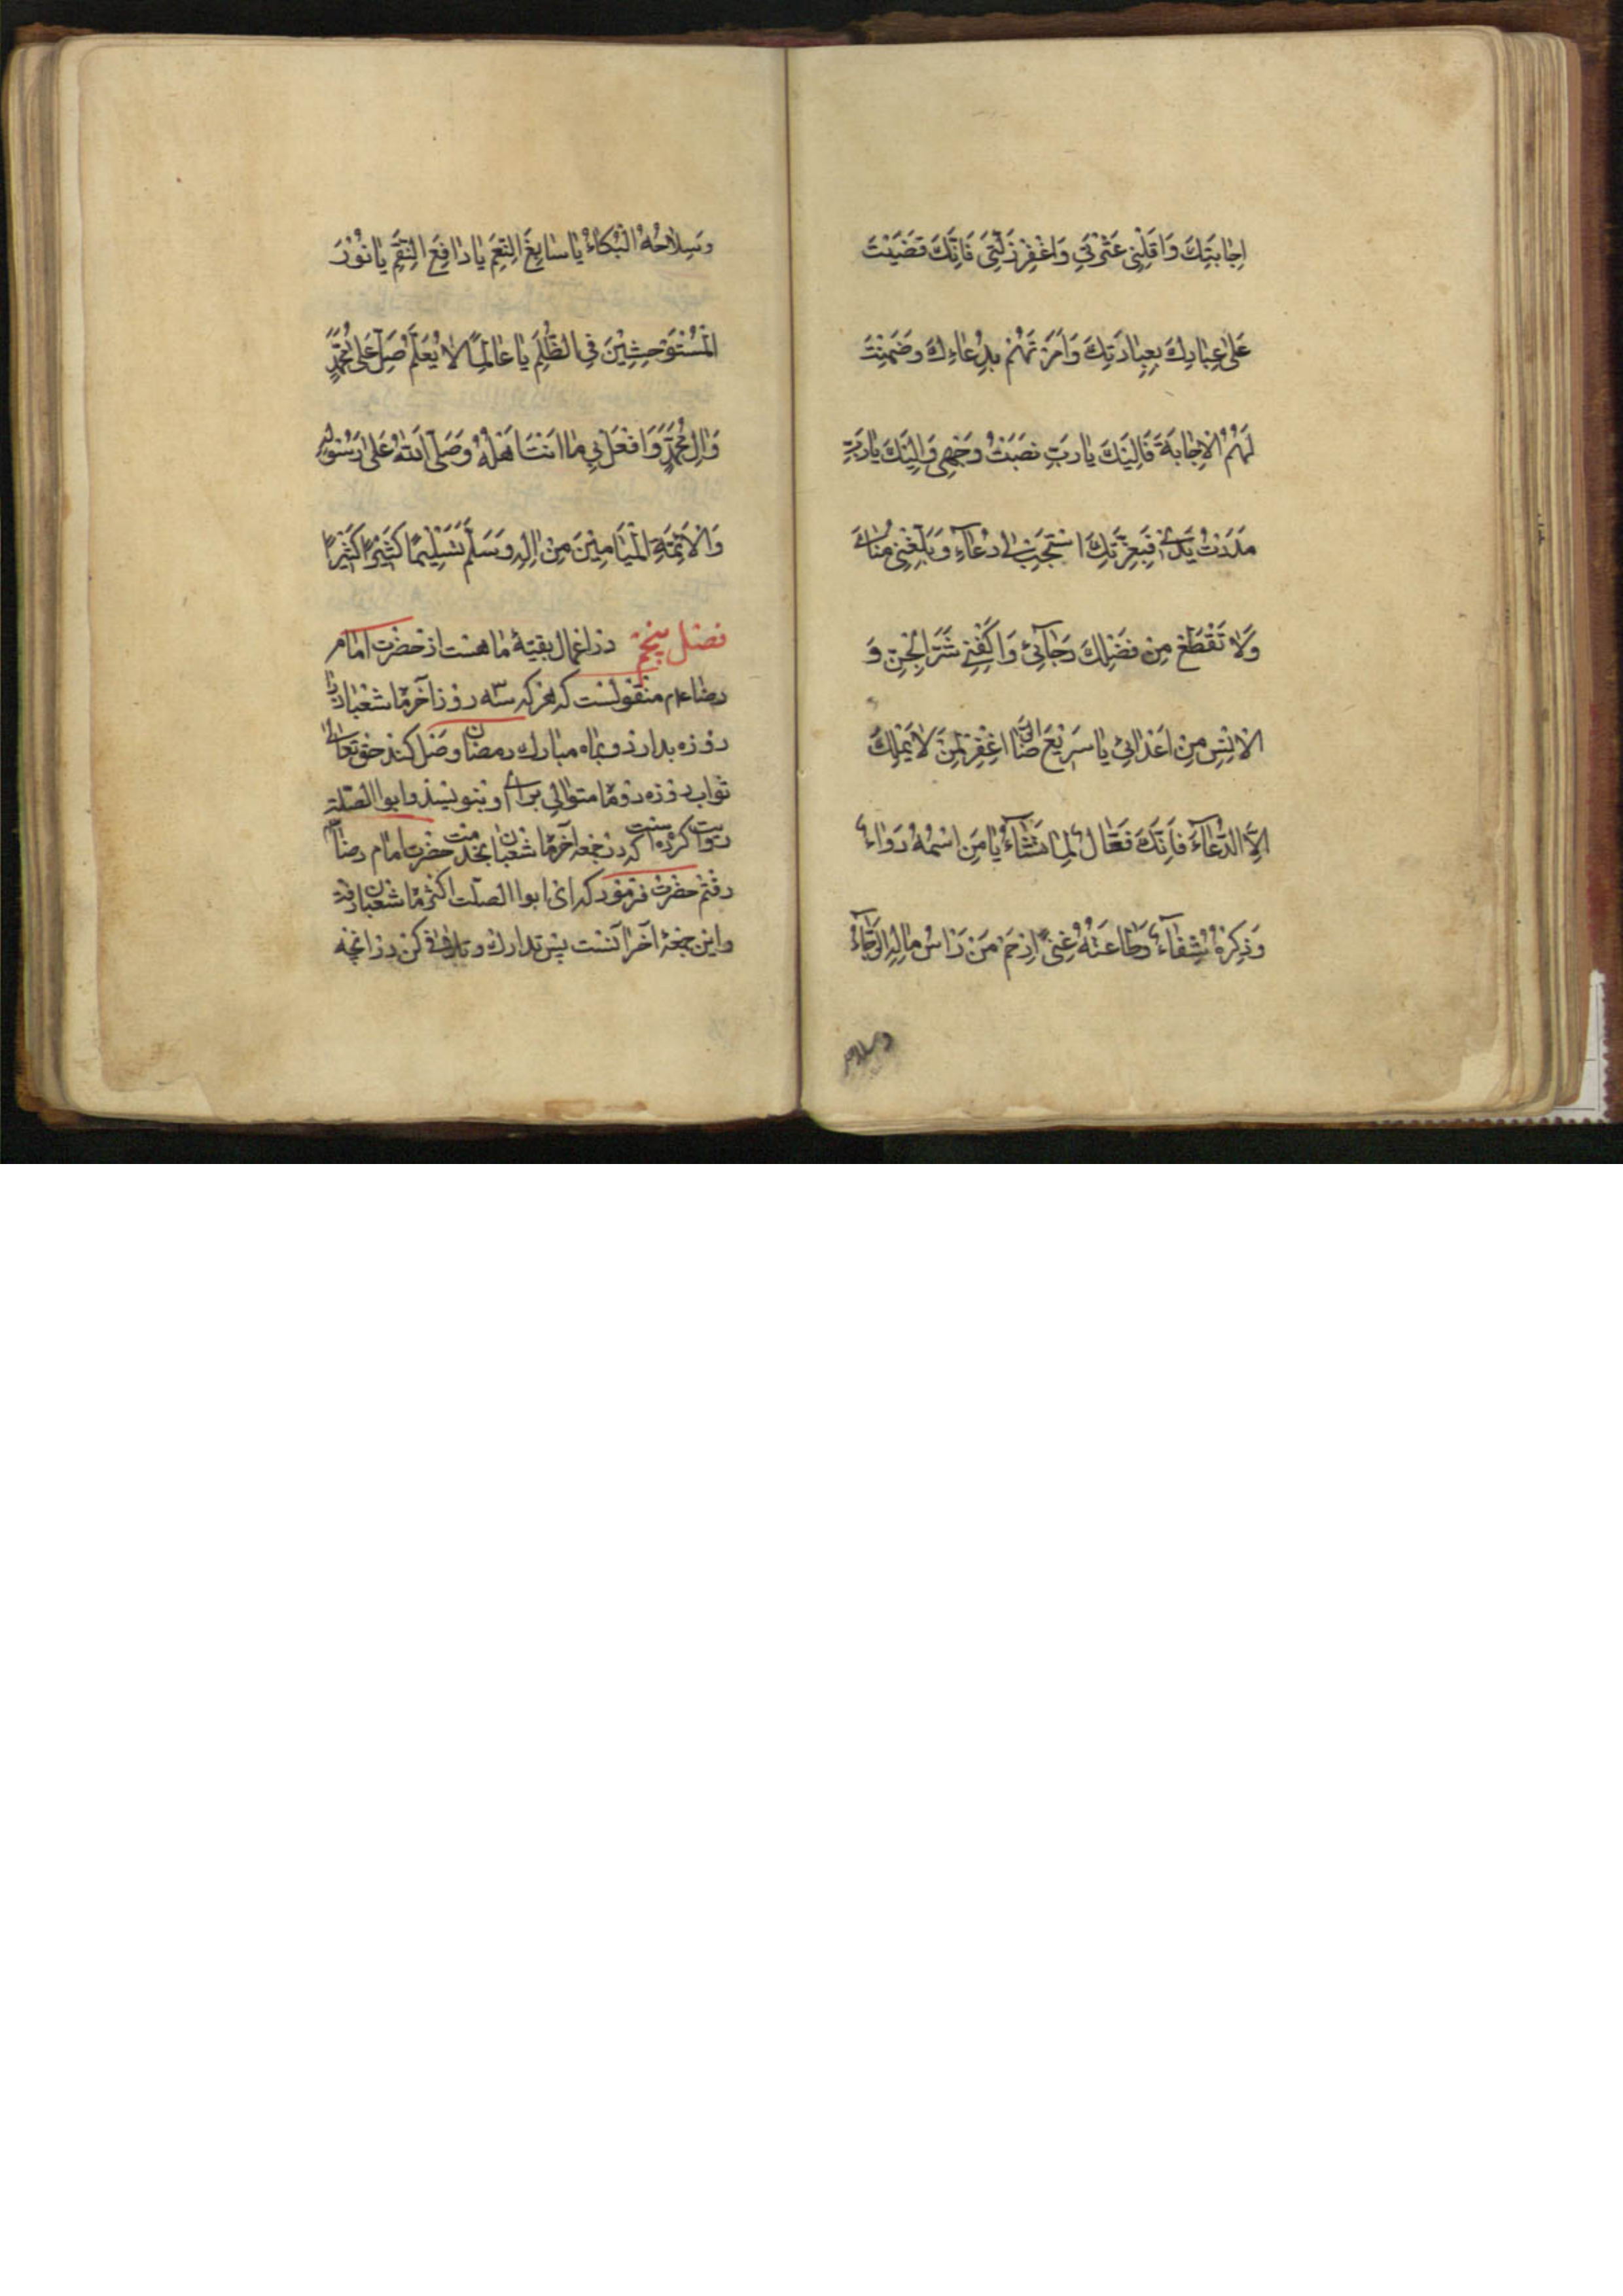 اِجابَتِكَ وَاَقِلْنِی عَثْرَتِی وَاغْفِرْ زَلَّتِی فَاِنَّكَ قَضَیْتَ
عَلٰی عِبادِكَ بِعِبادَتِكَ وَاَمَرْتَهُمْ بِدُعاءِكَ وَضَمِنْتَ
لَهُمُ الْاِجابَةَ فَاِلَیْكَ یا رَبِّ نَصَبْتُ وَجْهِی وَاِلَیْكَ یا رَبِّ
مَدَدْتُ یَدِی فَبِعِزَّتِكَ اسْتَجِبْ لِی دُعآءِ وَبَلِّغْنِی مُنایَ
وَلا تَقْطَعْ مِنْ فَضْلِكَ رَجآئی وَاكْفِنِی شَرَّ الْجِنِّ وَ
الْاِنْسِ مِنْ اَعْدائی یا سَرِیْعَ الرِّضَا اغْفِرْ لِمَنْ لا یَمْلِكُ
اِلَّا الدُّعآءَ فَاِنَّكَ فَعّالٌ لِما تَشآءُ یا مَنِ اسْمُهُ دَوآءٌ
وَذِكْرُهُ شِفآءٌ وَطاعَتُهُ غِنیً اِرْحَمْ مَنْ رَاْسُ مالِهِ الرَّجآءُ
وسلاحه
وَسِلاحُهُ الْبُكاءُ یا سابِغَ النِّعَمِ یا دافِعَ النِّقَمِ یا نُوْرَ
الْمُسْتَوْحِشِیْنَ فِی الظُّلَمِ یا عالِماً لا یُعَلَّمُ صَلِّ عَلی مُحَمَّدٍ
وَالِ مُحَمَّدٍ وَافْعَلْ بِی ما اَنْتَ اَهْلُهُ وَصَلَّی اللهُ عَلٰی رَسُوْلِهِ
وَالْاَئِمَّةِ الْمَیامِیْنَ مِنْ الِهِ وَسَلَّمَ تَسْلِیْمًا كَثِیْرًا كَثِیْرًا
فصل پنجم در اعمال بقیهٔ ماهست از حضرت امام
رضا ع م منقولست كه هركه سه روز آخر ماه شعبان را
روزه بدارد و بماه مبارك رمضان وصل كند حق تعالی
ثواب روزه دو ماه متوالی برای او بنویسد و ابوالصلت
روایت كرده است كه در جمعه آخر ماه شعبان بخدمت حضرت امام رضا ع م
رفتم حضرت فرمود كه ای ابوالصلت اكثر ماه شعبان رفت
و این جمعهٔ آخر آنست پس تدارك و تلافی كن در آنچه